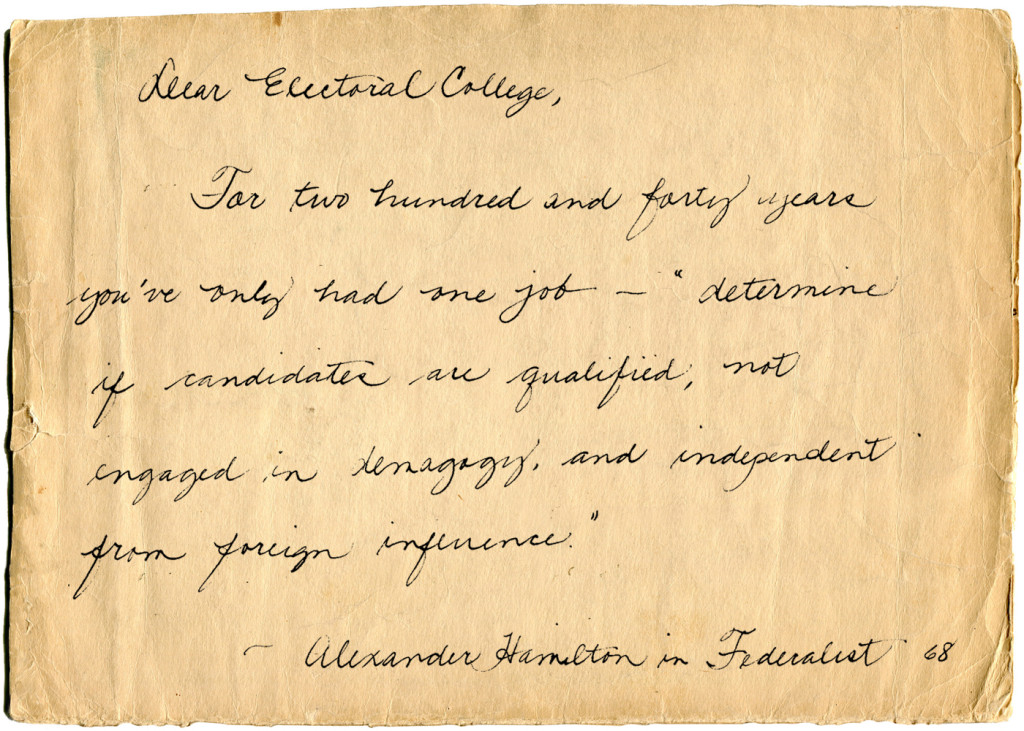 Dear Electoral College,
For two hundred and forty years
you've only had one job – "determine
if candidates are qualified, not
engaged in demagogy, and independent
from foreign influence."
– Alexander Hamilton in Federalist 68